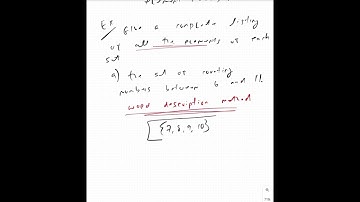 Ex/ Give a complete listing
of all the elements of each
set
a) the set of counting
numbers between 6 and 11.
word description method
{7, 8, 9, 10}